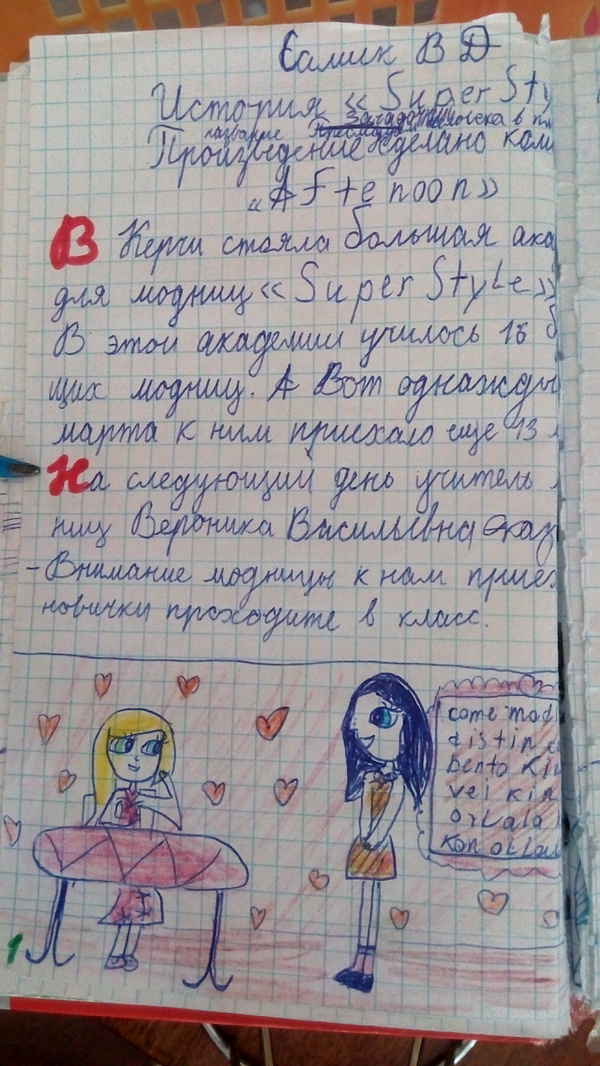 Самик В Д
История «Super Sty
название человека в
Произведение сделано ком
«Aftenoon»
В Керчи стояла большая ака
для модниц «Super Style»
В этой академии училось 18 б
щих модниц. А Вот однажды
марта к ним приехало еще 13
На следующий день учитель
ниц Вероника Васильевна сказ
-Внимание модницы к нам приез
новички проходите в класс.
come mod
distin
bento kin
vei kin
orlala
kon orlan
1